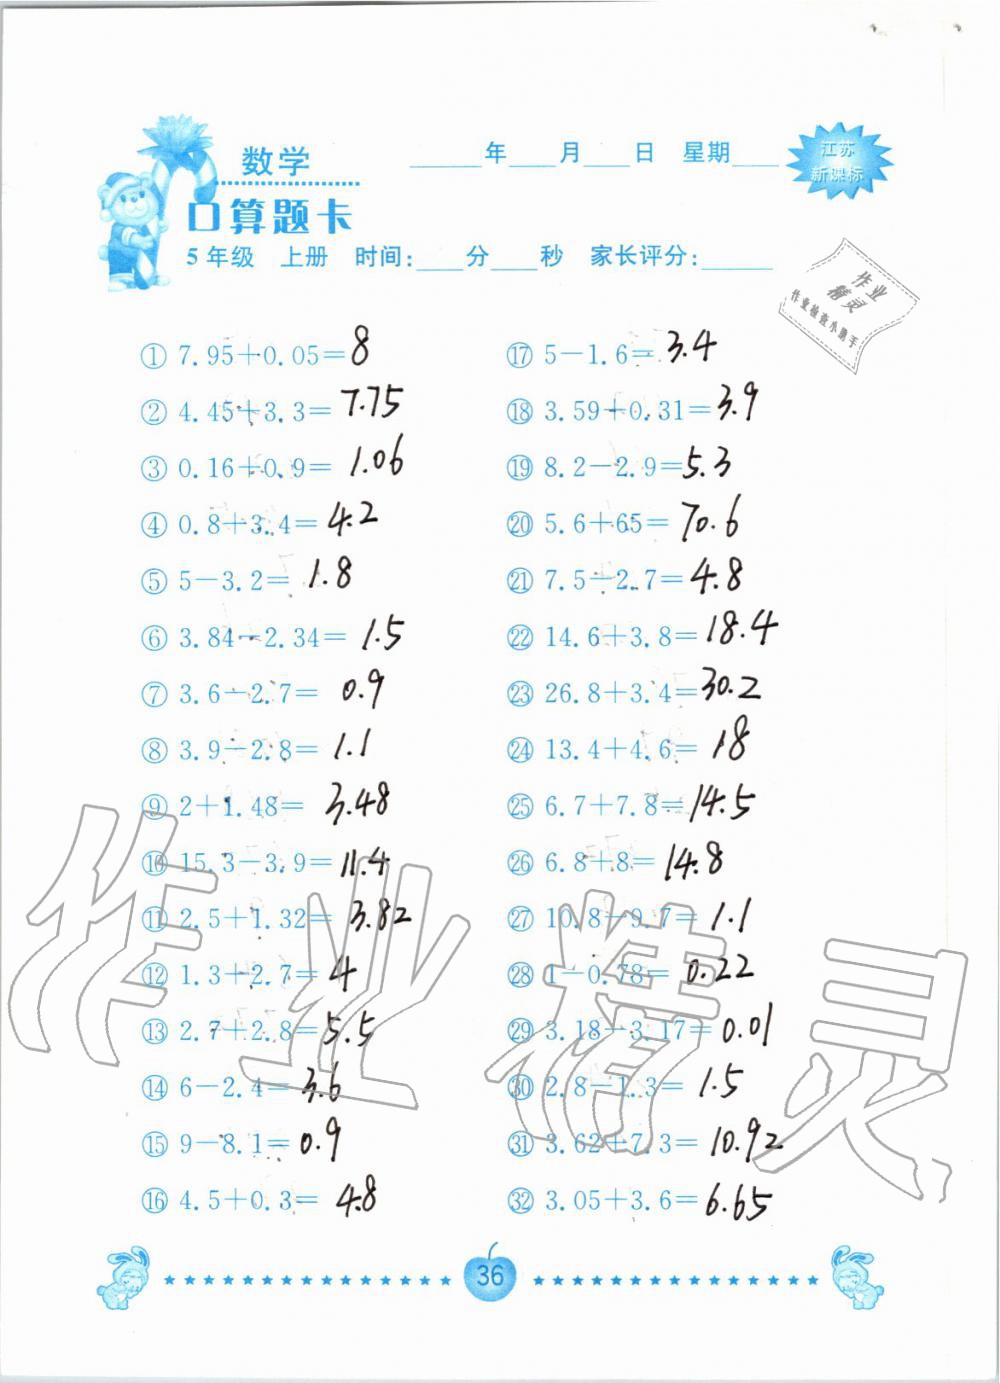 数学
____年____月____日 星期____
江苏
新课标
口算题卡
5年级 上册 时间:____分____秒 家长评分:______
作业
精灵
作业检查小助手
① 7.95+0.05=8
② 4.45+3.3=7.75
③ 0.16+0.9=1.06
④ 0.8+3.4=4.2
⑤ 5-3.2=1.8
⑥ 3.84-2.34=1.5
⑦ 3.6-2.7=0.9
⑧ 3.9-2.8=1.1
⑨ 2+1.48=3.48
⑩ 15.3-3.9=11.4
⑪ 2.5+1.32=3.82
⑫ 1.3+2.7=4
⑬ 2.7+2.8=5.5
⑭ 6-2.4=3.6
⑮ 9-8.1=0.9
⑯ 4.5+0.3=4.8
⑰ 5-1.6=3.4
⑱ 3.59+0.31=3.9
⑲ 8.2-2.9=5.3
⑳ 5.6+65=70.6
㉑ 7.5-2.7=4.8
㉒ 14.6+3.8=18.4
㉓ 26.8+3.4=30.2
㉔ 13.4+4.6=18
㉕ 6.7+7.8=14.5
㉖ 6.8+8=14.8
㉗ 10.8-9.7=1.1
㉘ 1-0.78=0.22
㉙ 3.18-3.17=0.01
㉚ 2.8-1.3=1.5
㉛ 3.62+7.3=10.92
㉜ 3.05+3.6=6.65
作业精灵
36